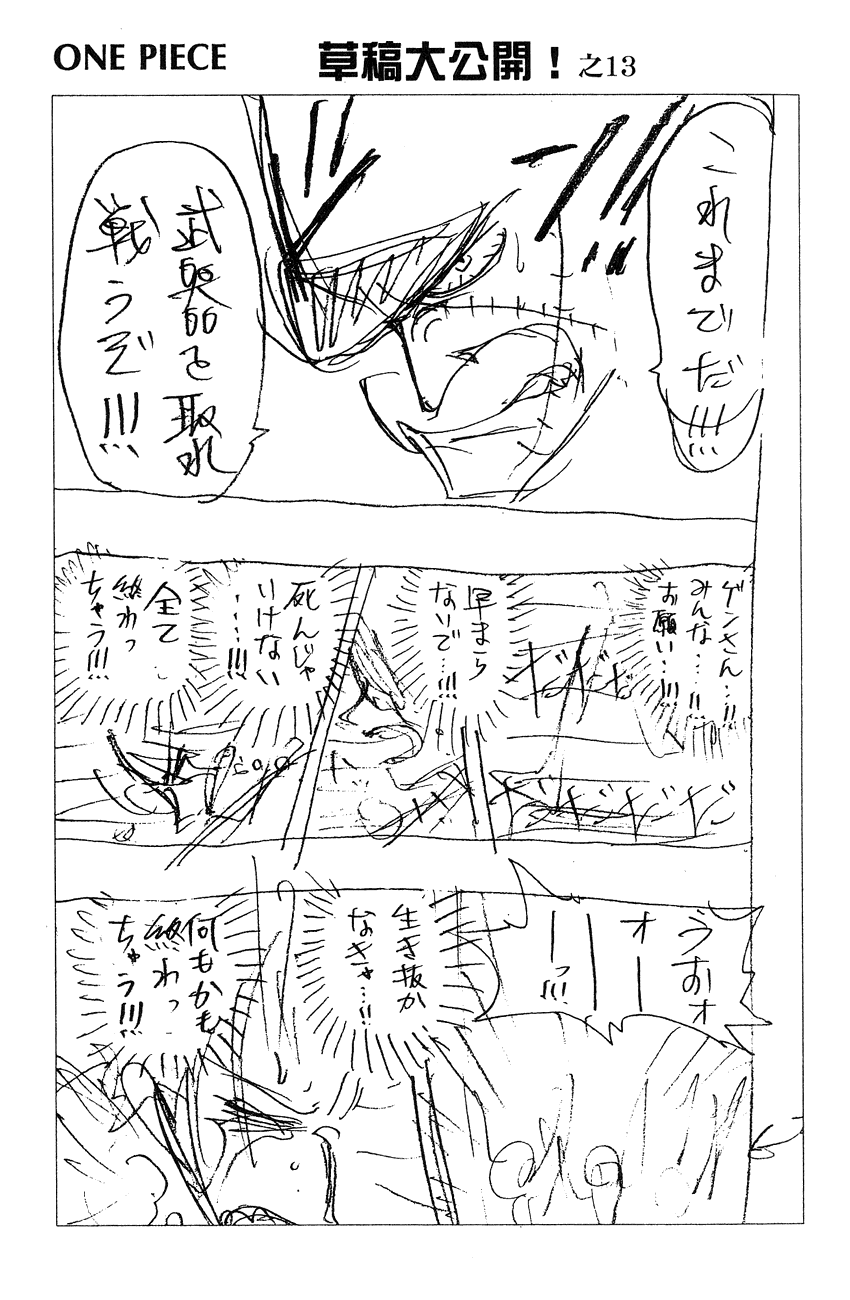 ONE PIECE
草稿大公開！之13
これまでだ!!!
武器を取れ
戦うぞ!!!
ゲンさん…!!
みんな…!!
お願い…!!!
早まら
ないで…!!!
死んじゃ
いけない
…!!!
全て
終わっ
ちゃう!!!
うおォ
オー
ー
ーっ!!!
生き抜か
なきゃ…!!
何もかも
終わっ
ちゃう!!!